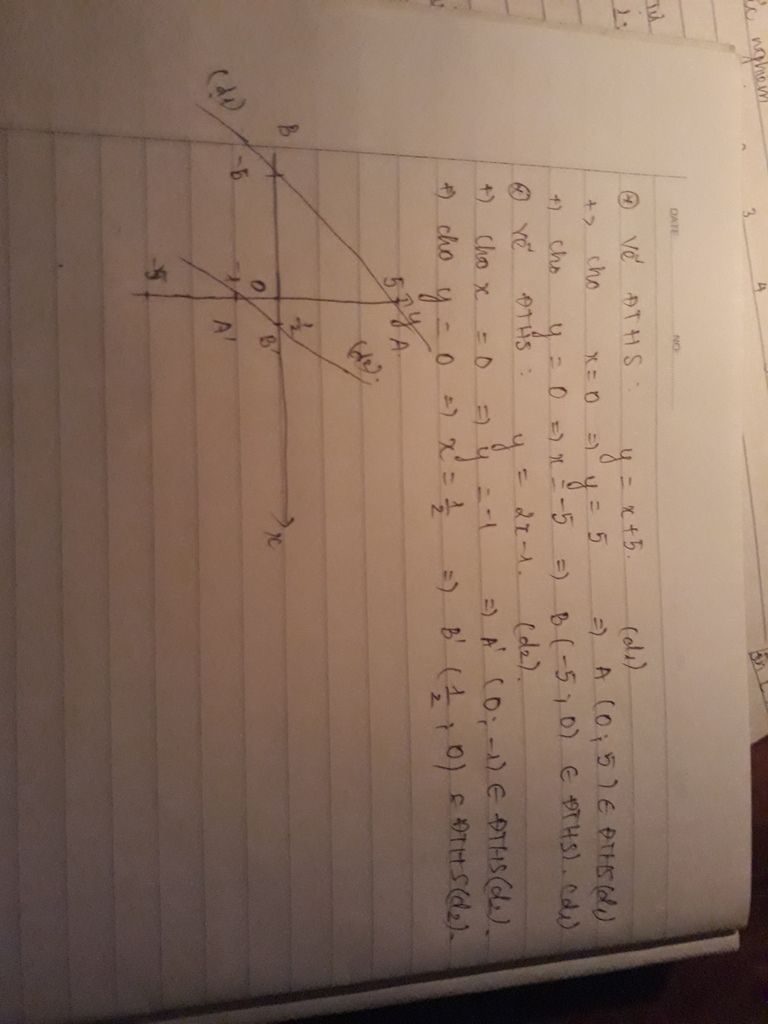 DATE NO.
⊛ Vẽ ĐTHS: y = x+5. (d1)
+) cho x=0 => y = 5 => A (0; 5) ∈ ĐTHS(d1)
+) cho y = 0 => x = -5 => B (-5; 0) ∈ ĐTHS). (d1)
⊛ Vẽ ĐTHS: y = 2x-1. (d2).
+) Cho x = 0 => y = -1 => A' (0; -1) ∈ ĐTHS(d2).
+) cho y = 0 => x = 1/2 => B' (1/2; 0) ∈ ĐTHS(d2).
y
5 A
(d2).
B 1/2
0 B' x
-5 -1 A'
(d1)
-5
nghiem
3
4